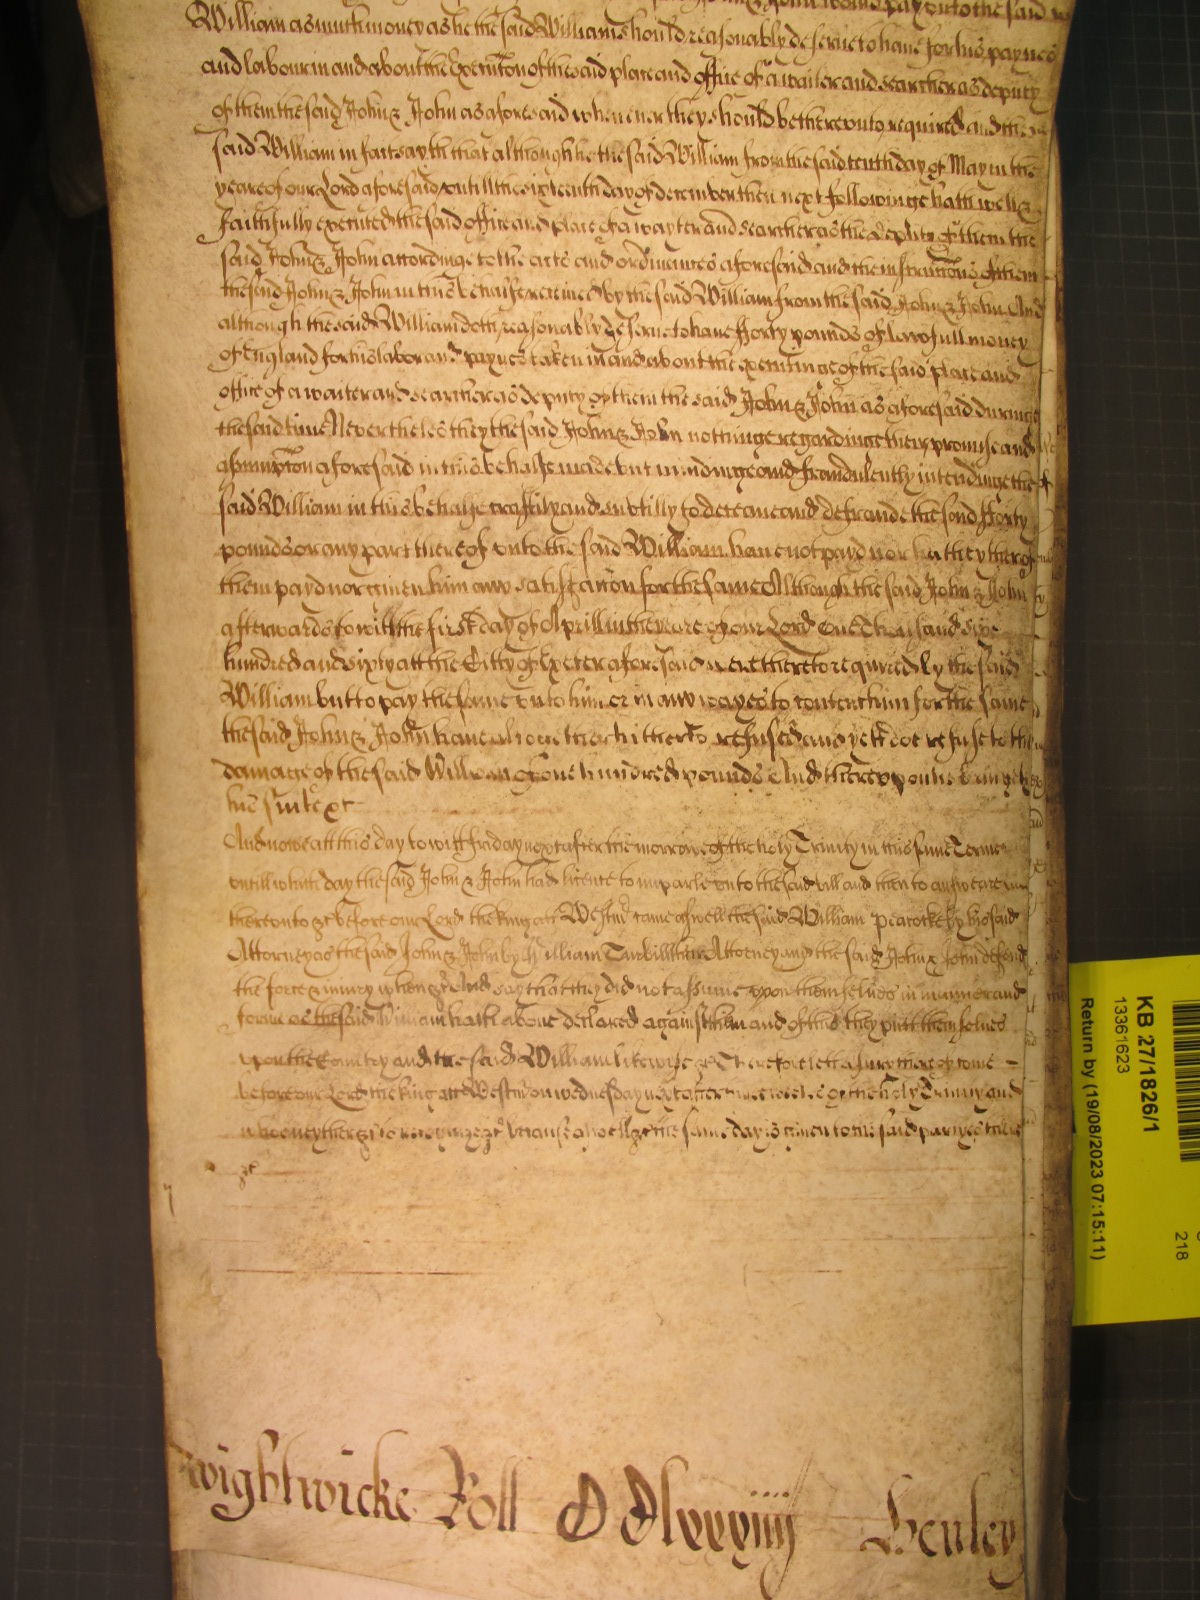 William as much money as he the said William should reasonably deserve to have for his paynes
and labour in and about the Execution of the said place and office of a waiter and searcher as deputy
of them the said John & John as aforesaid when ever they should be thereunto required and the
said William in fact sayth that although he the said William from the said tenth day of May in the
yeare of our Lord aforesaid untill the sixteenth day of december then next followinge hath well &
faithfully executed the said office and place of a wayter and searcher as the deputy of them the
said John & John accordinge to the acts and ordinances aforesaid and the instructions of them
the said John & John in this behalfe received by the said William from the said John & John And
although the said William doth reasonably deserve to have fforty pounds of lawfull money
of England for his labor and paynes taken in and about the executinge of the said place and
office of a waiter and searcher as deputy of them the said John & John as aforesaid duringe
the said time Neverthelesse they the said John & John nothinge regardinge their promise and
assumption aforesaid in this behalfe made but mindinge and fraudulently intendinge the
said William in this behalfe craftily and subtilly to deceave and defraude the said fforty
pounds or any part thereof unto the said William have not payd nor hath eyther of
them paid nor given him any satisfaccion for the same Although the said John & John
afterwards to witt the first day of Aprill in the yeare of our Lord One Thousand sixe
hundred and sixty att the Citty of Exeter aforesaid were thereto required by the said
William but to pay the same unto him or in any wayes to content him for the same
the said John & John have altogether hitherto refused and yett doe refuse to the
damage of the said William of one hundred pounds And thereupon he bringeth
his suite &c
And nowe att this day to witt ffriday next after the morrowe of the holy Trinity in this same Terme
untill which day the said John & John had licence to imparle unto the said bill and then to answere
thereunto &c before our Lord the king att Westmr came aswell the said William Peacocke by his said
Attorney as the said John & John by William their Attorney and the said John & John defend
the force & iniury when &c And say that they did not assume upon themselves in manner and
forme as the said William hath above declared against them and of this they putt themselves
upon the Countrey and the said William likewise &c Therefore lett a Jury thereof come
before our Lord the king att Westmr on wednesday next after three weekes of the holy Trinity and
who neyther &c to recognize &c because aswell &c the same day is given to the said partyes there
&c
Wightwicke Roll DDlxxxiiij Henley
KB 27/1826/1
13361623
Return by (19/08/2023 07:15:11)
218